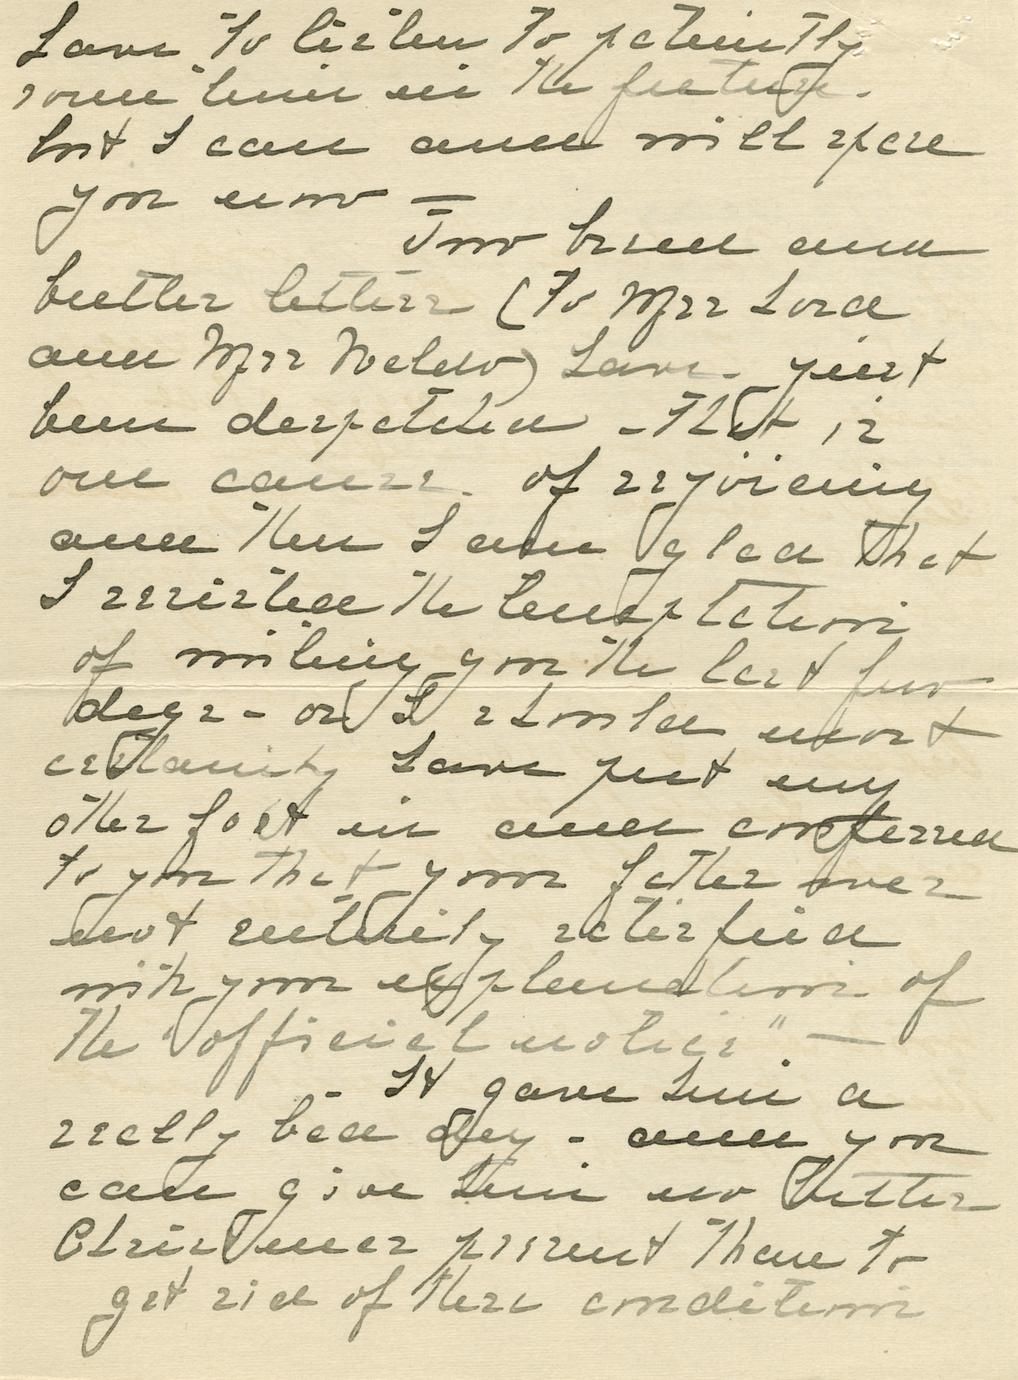 have to listen to patiently
some time in the future.
but I can and will spare
you now —
Two bread and
butter letters (to Mrs Lord
and Mrs Waldo) have just
been despatched - That is
one cause of rejoicing
and then I am glad that
I resisted the temptation
of writing you the last few
days - or I should most
certainly have put my
other foot in and confessed
to you that your father was
not entirely satisfied
with your explanation of
the "official notice". —
- It gave him a
really bad day - and you
can give him no better
Christmas present than to
get rid of these conditions